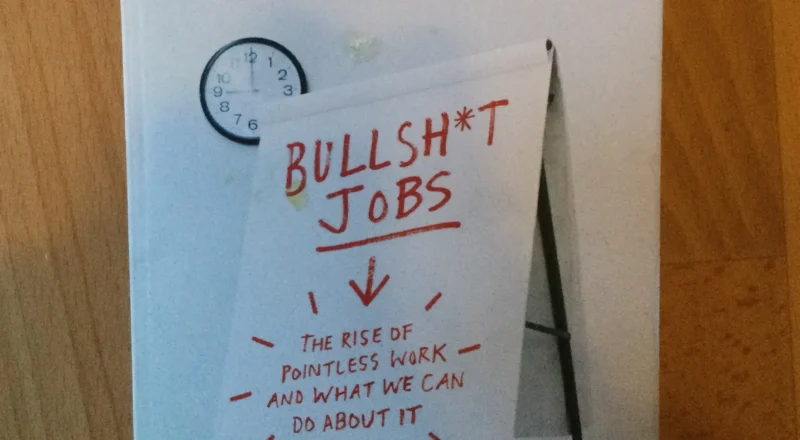 12
1
2
3
6
7
8
9
10
BULLSH*T
JOBS
THE RISE OF
POINTLESS WORK
AND WHAT WE CAN
DO ABOUT IT